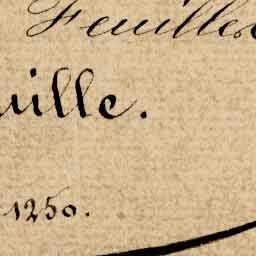 Feuilles
uille.
1250.